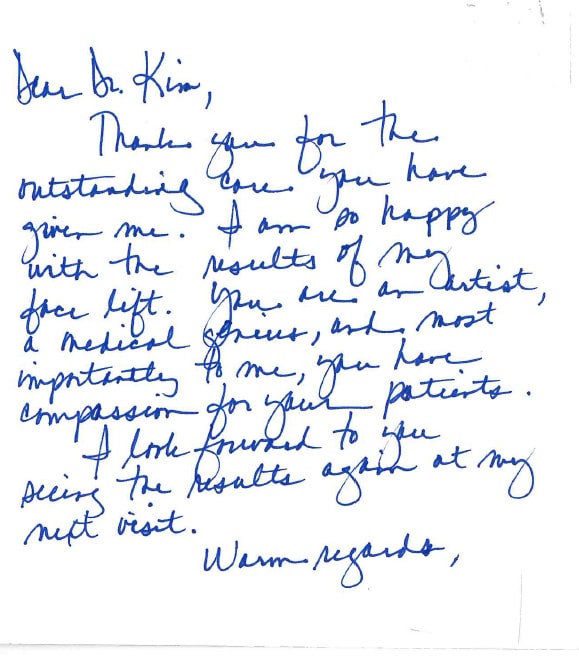 Dear Dr. Kim,
Thank you for the
outstanding care you have
given me. I am so happy
with the results of my
face lift. You are an artist,
a medical genius, and most
importantly to me, you have
compassion for your patients.
I look forward to you
seeing the results again at my
next visit.
Warm regards,